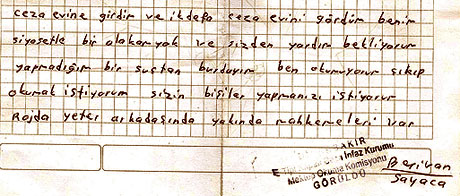 ceza evine girdim ve ilkdefa ceza evini gördüm benim
siyasetle bir alakam yok ve sizden yardım bekliyorum
yapmadığım bir suçtan burdayım ben okumuyorum çıkıp
okumak istiyorum sizin bişiler yapmanızı istiyorum
Rojda yeter arkadaşında yakında mahkemeleri var
Berivan
Sayaca
İnfaz Kurumu
Mektup Okuma Komisyonu
GÖRÜLDÜ